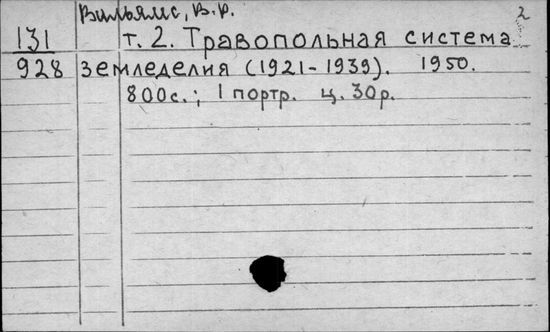 Вильямс, В.Р. 2
131 т. 2. Травопольная система
928 земледелия (1921-1939). 1950.
800с.; 1 портр. ц. 30р.